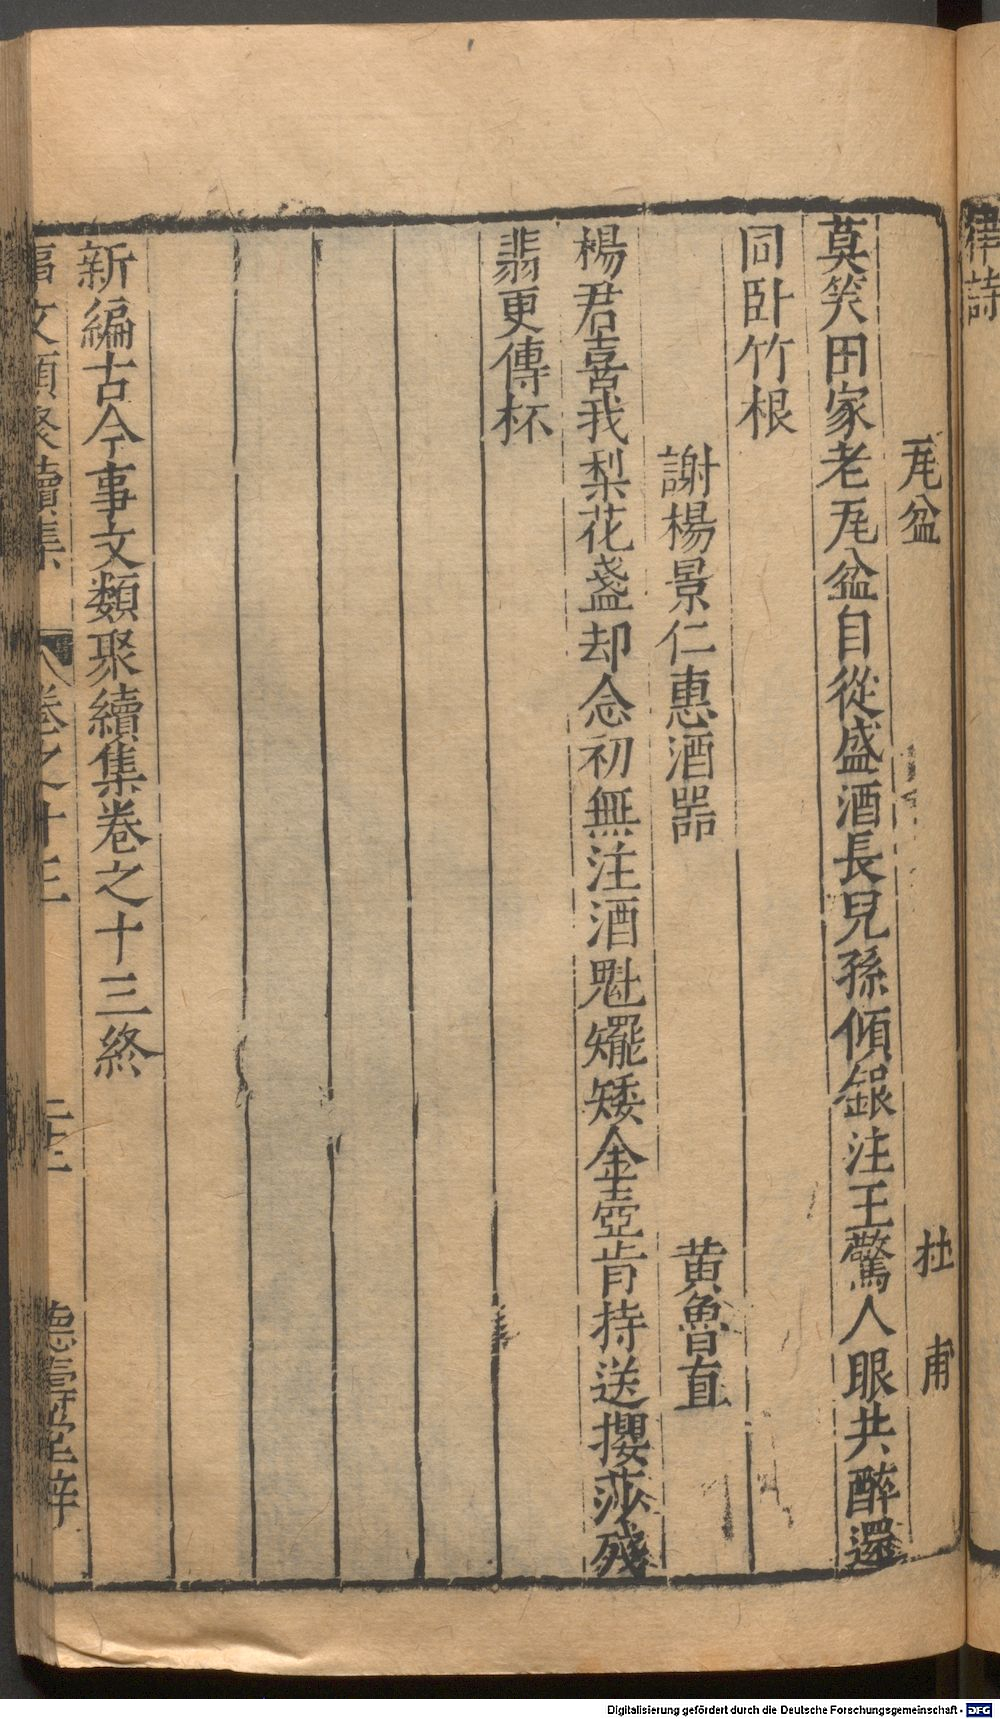 律詩
瓦盆 杜甫
莫笑田家老瓦盆自從盛酒長兒孫傾銀注玉驚人眼共醉還
同卧竹根
謝楊景仁惠酒器 黄魯直
楊君喜我梨花盞却念初無注酒魁𥏠矮金壺肯持送挼莎殘
翡更傳杯
新編古今事文類聚續集卷之十三終
事文類聚續集 卷之十三 二十二 德壽堂梓
Digitalisierung gefördert durch die Deutsche Forschungsgemeinschaft - DFG